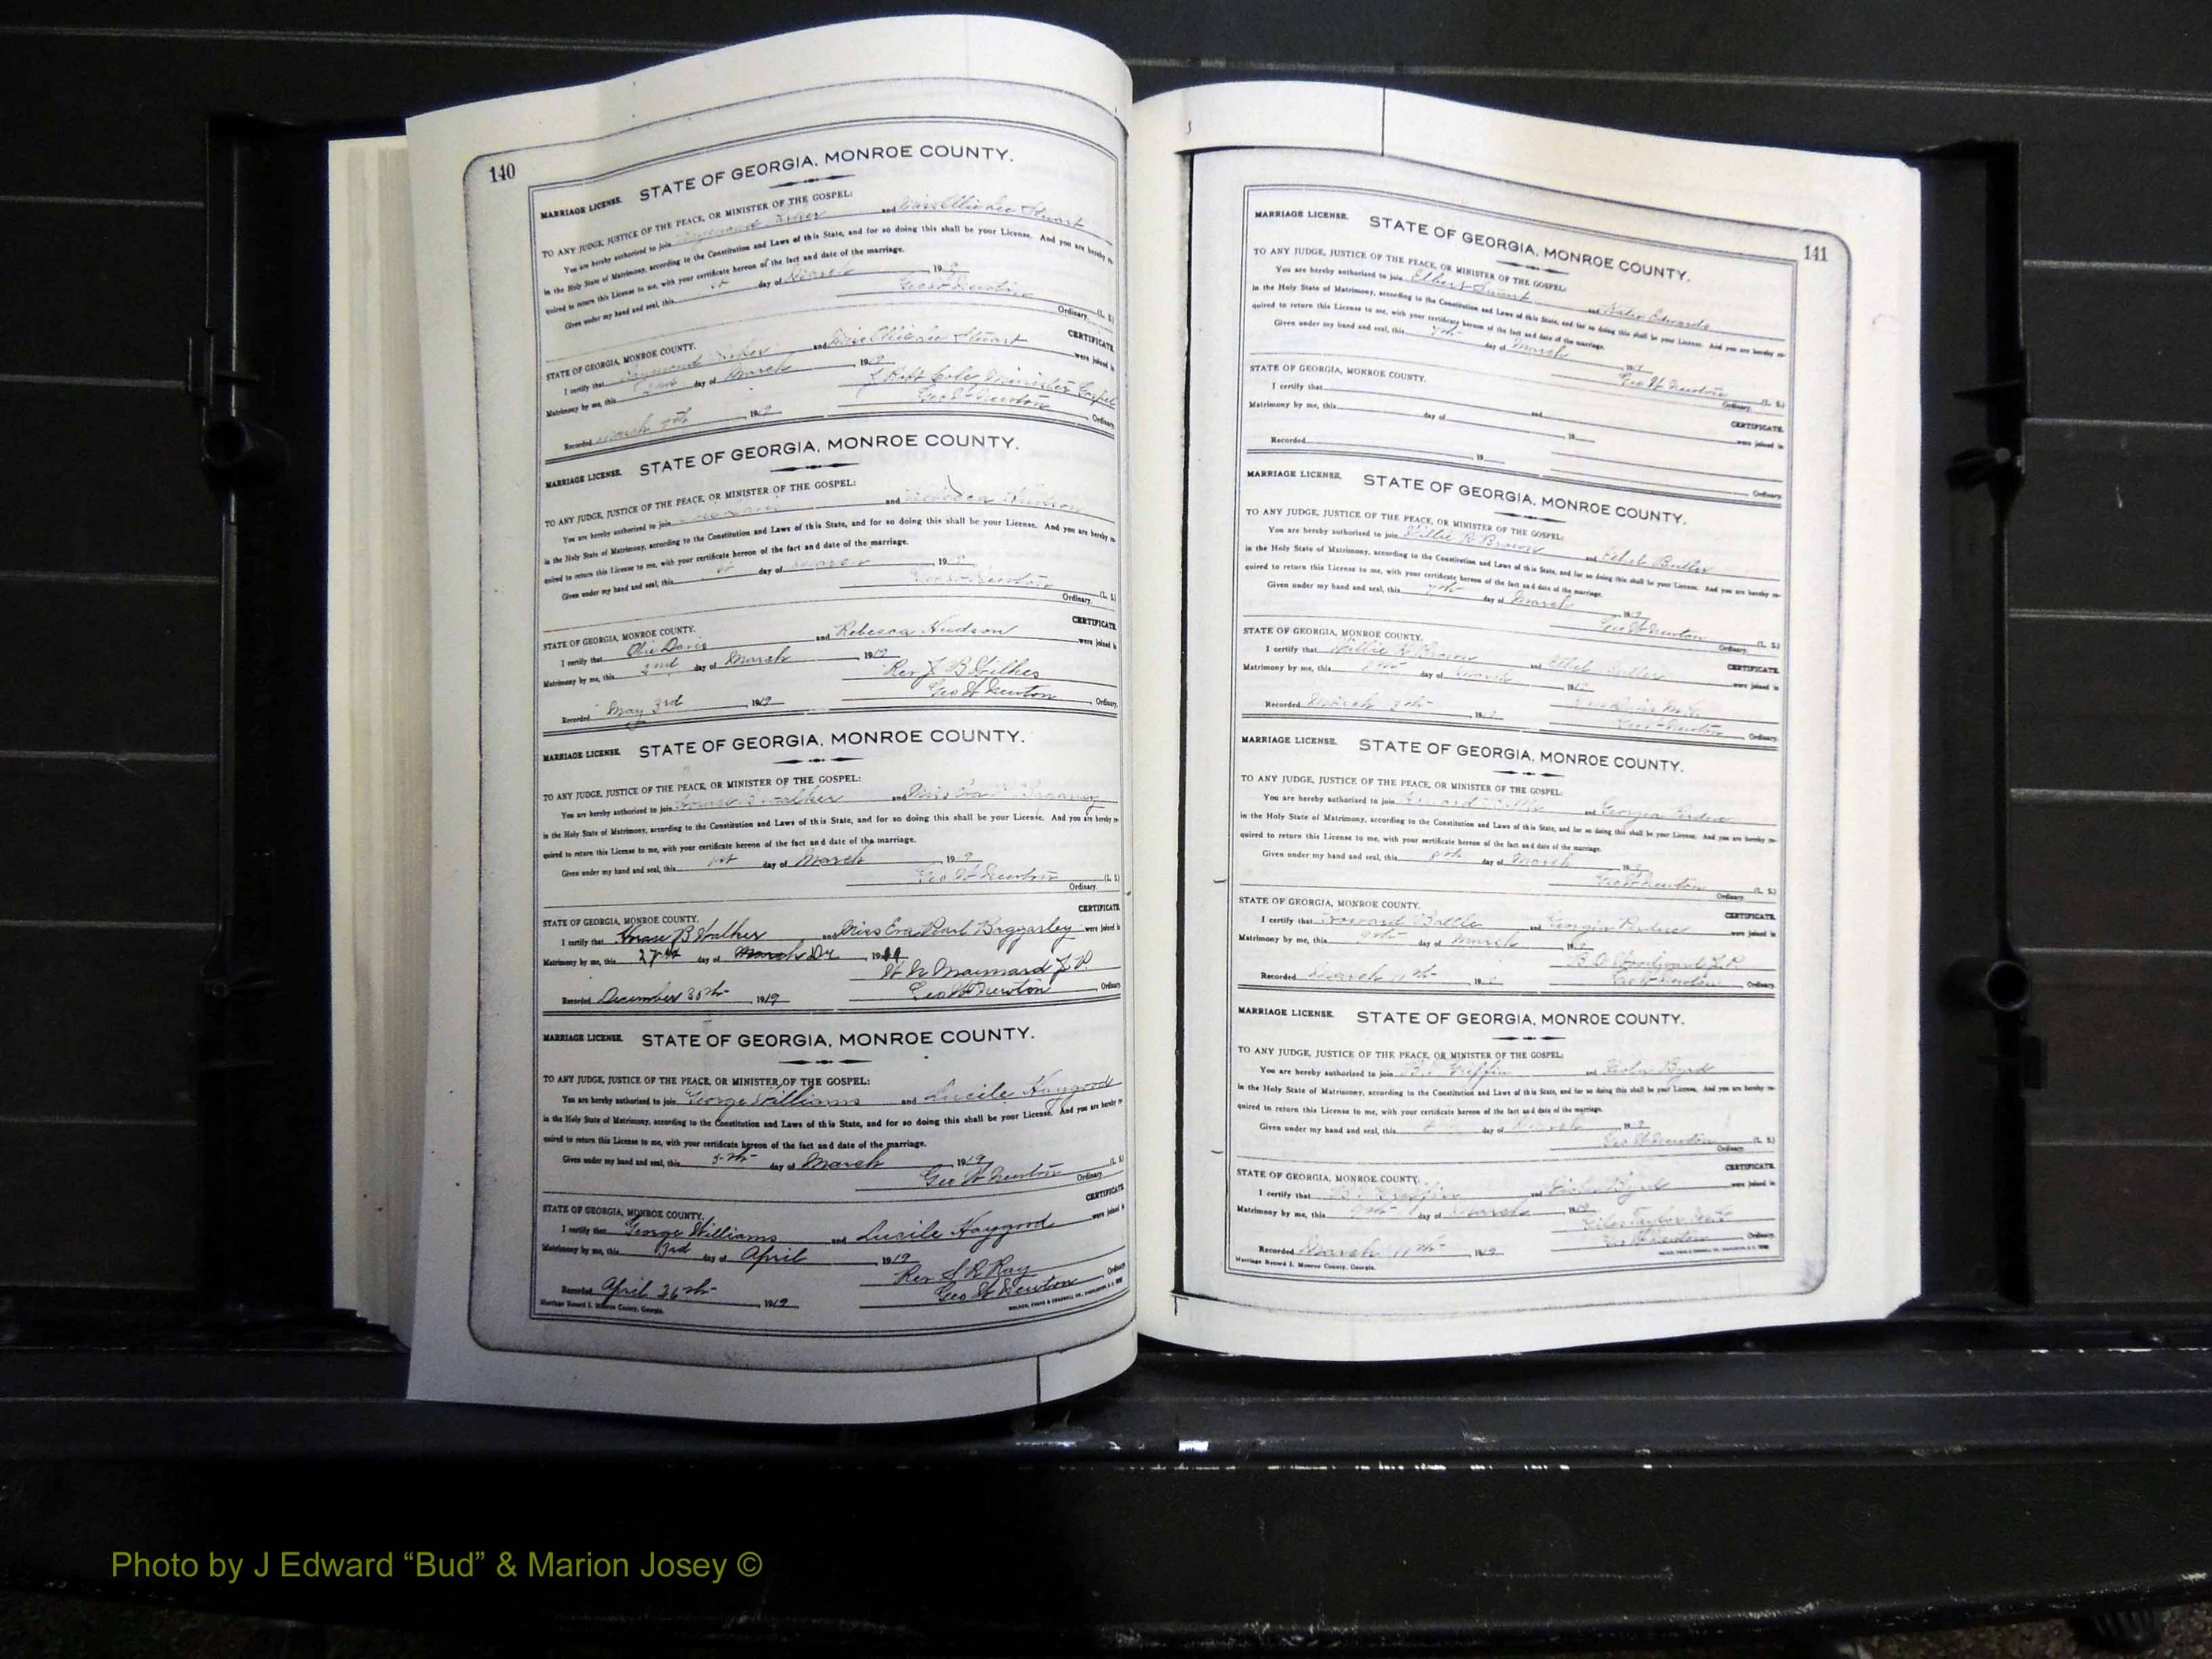 140
MARRIAGE LICENSE. STATE OF GEORGIA, MONROE COUNTY.
TO ANY JUDGE, JUSTICE OF THE PEACE, OR MINISTER OF THE GOSPEL:
You are hereby authorized to join and Miss Ollie Lee Stuart
in the Holy State of Matrimony, according to the Constitution and Laws of this State, and for so doing this shall be your License. And you are hereby re-
quired to return this License to me, with your certificate hereon of the fact and date of the marriage.
Given under my hand and seal, this day of March, 199
Geo W Newton (L. S.)
Ordinary.
STATE OF GEORGIA, MONROE COUNTY. CERTIFICATE.
I certify that Raymond and Miss Ollie Lee Stuart were joined in
Matrimony by me, this 2nd day of March, 1919
Minister Gospel
Recorded March 7th, 1919 Geo W Newton Ordinary.
MARRIAGE LICENSE. STATE OF GEORGIA, MONROE COUNTY.
TO ANY JUDGE, JUSTICE OF THE PEACE, OR MINISTER OF THE GOSPEL:
You are hereby authorized to join and Rebecca Hudson
in the Holy State of Matrimony, according to the Constitution and Laws of this State, and for so doing this shall be your License. And you are hereby re-
quired to return this License to me, with your certificate hereon of the fact and date of the marriage.
Given under my hand and seal, this day of March, 1919
Geo W Newton (L. S.)
Ordinary.
STATE OF GEORGIA, MONROE COUNTY. CERTIFICATE.
I certify that Obie Davis and Rebecca Hudson were joined in
Matrimony by me, this 2nd day of March, 1919
Rev J B Gilkes
Recorded May 3rd, 1919 Geo W Newton Ordinary.
MARRIAGE LICENSE. STATE OF GEORGIA, MONROE COUNTY.
TO ANY JUDGE, JUSTICE OF THE PEACE, OR MINISTER OF THE GOSPEL:
You are hereby authorized to join Horace B Walker and Miss Eva
in the Holy State of Matrimony, according to the Constitution and Laws of this State, and for so doing this shall be your License. And you are hereby re-
quired to return this License to me, with your certificate hereon of the fact and date of the marriage.
Given under my hand and seal, this 1st day of March, 199
Geo W Newton (L. S.)
Ordinary.
STATE OF GEORGIA, MONROE COUNTY. CERTIFICATE.
I certify that Horace B Walker and Miss Eva Pearl Baggarley were joined in
Matrimony by me, this 27th day of March Dec, 1919
Maynard J. P.
Recorded December 30th, 1919 Geo W Newton Ordinary.
MARRIAGE LICENSE. STATE OF GEORGIA, MONROE COUNTY.
TO ANY JUDGE, JUSTICE OF THE PEACE, OR MINISTER OF THE GOSPEL:
You are hereby authorized to join George Williams and Lucile Haygood
in the Holy State of Matrimony, according to the Constitution and Laws of this State, and for so doing this shall be your License. And you are hereby re-
quired to return this License to me, with your certificate hereon of the fact and date of the marriage.
Given under my hand and seal, this 5th day of March, 1919
Geo W Newton (L. S.)
Ordinary.
STATE OF GEORGIA, MONROE COUNTY. CERTIFICATE.
I certify that George Williams and Lucile Haygood were joined in
Matrimony by me, this 3rd day of April, 1919
Rev S R Ray
Recorded April 26th, 1919 Geo W Newton Ordinary.
Marriage Record I. Monroe County, Georgia.
141
MARRIAGE LICENSE. STATE OF GEORGIA, MONROE COUNTY.
TO ANY JUDGE, JUSTICE OF THE PEACE, OR MINISTER OF THE GOSPEL:
You are hereby authorized to join Elbert and Katie Edwards
in the Holy State of Matrimony, according to the Constitution and Laws of this State, and for so doing this shall be your License. And you are hereby re-
quired to return this License to me, with your certificate hereon of the fact and date of the marriage.
Given under my hand and seal, this 7th day of March, 199
Geo W Newton (L. S.)
Ordinary.
STATE OF GEORGIA, MONROE COUNTY. CERTIFICATE.
I certify that and were joined in
Matrimony by me, this day of, 19
Recorded, 19 Ordinary.
MARRIAGE LICENSE. STATE OF GEORGIA, MONROE COUNTY.
TO ANY JUDGE, JUSTICE OF THE PEACE, OR MINISTER OF THE GOSPEL:
You are hereby authorized to join Willie R Brown and Ethel Butler
in the Holy State of Matrimony, according to the Constitution and Laws of this State, and for so doing this shall be your License. And you are hereby re-
quired to return this License to me, with your certificate hereon of the fact and date of the marriage.
Given under my hand and seal, this 7th day of March, 199
Geo W Newton (L. S.)
Ordinary.
STATE OF GEORGIA, MONROE COUNTY. CERTIFICATE.
I certify that Willie R Brown and Ethel Butler were joined in
Matrimony by me, this day of March, 1919
M. G.
Recorded March, 19 Geo W Newton Ordinary.
MARRIAGE LICENSE. STATE OF GEORGIA, MONROE COUNTY.
TO ANY JUDGE, JUSTICE OF THE PEACE, OR MINISTER OF THE GOSPEL:
You are hereby authorized to join Howard Battle and Georgia Perdue
in the Holy State of Matrimony, according to the Constitution and Laws of this State, and for so doing this shall be your License. And you are hereby re-
quired to return this License to me, with your certificate hereon of the fact and date of the marriage.
Given under my hand and seal, this 8th day of March, 199
Geo W Newton (L. S.)
Ordinary.
STATE OF GEORGIA, MONROE COUNTY. CERTIFICATE.
I certify that Howard Battle and Georgia Perdue were joined in
Matrimony by me, this 9th day of March, 199
B. O. Woodward J. P.
Recorded March 11th, 19 Geo W Newton Ordinary.
MARRIAGE LICENSE. STATE OF GEORGIA, MONROE COUNTY.
TO ANY JUDGE, JUSTICE OF THE PEACE, OR MINISTER OF THE GOSPEL:
You are hereby authorized to join Griffin and Byrd
in the Holy State of Matrimony, according to the Constitution and Laws of this State, and for so doing this shall be your License. And you are hereby re-
quired to return this License to me, with your certificate hereon of the fact and date of the marriage.
Given under my hand and seal, this day of March, 1919
Geo W Newton (L. S.)
Ordinary.
STATE OF GEORGIA, MONROE COUNTY. CERTIFICATE.
I certify that Griffin and Byrd were joined in
Matrimony by me, this 9th day of March, 1919
Giles Taylor
Recorded March 11th, 1919 Geo W Newton Ordinary.
Marriage Record I. Monroe County, Georgia.
Photo by J Edward “Bud” & Marion Josey ©